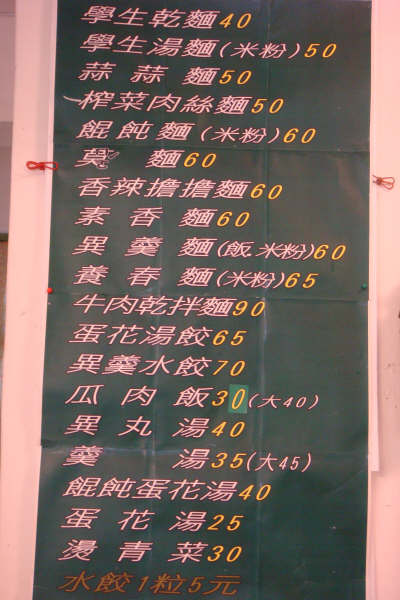 學生乾麵40
學生湯麵(米粉)50
蒜蒜麵50
榨菜肉絲麵50
餛飩麵(米粉)60
異麵60
香辣擔擔麵60
素香麵60
異羹麵(飯.米粉)60
養春麵(米粉)65
牛肉乾拌麵90
蛋花湯餃65
異羹水餃70
瓜肉飯30(大40)
異丸湯40
羹湯35(大45)
餛飩蛋花湯40
蛋花湯25
燙青菜30
水餃1粒5元